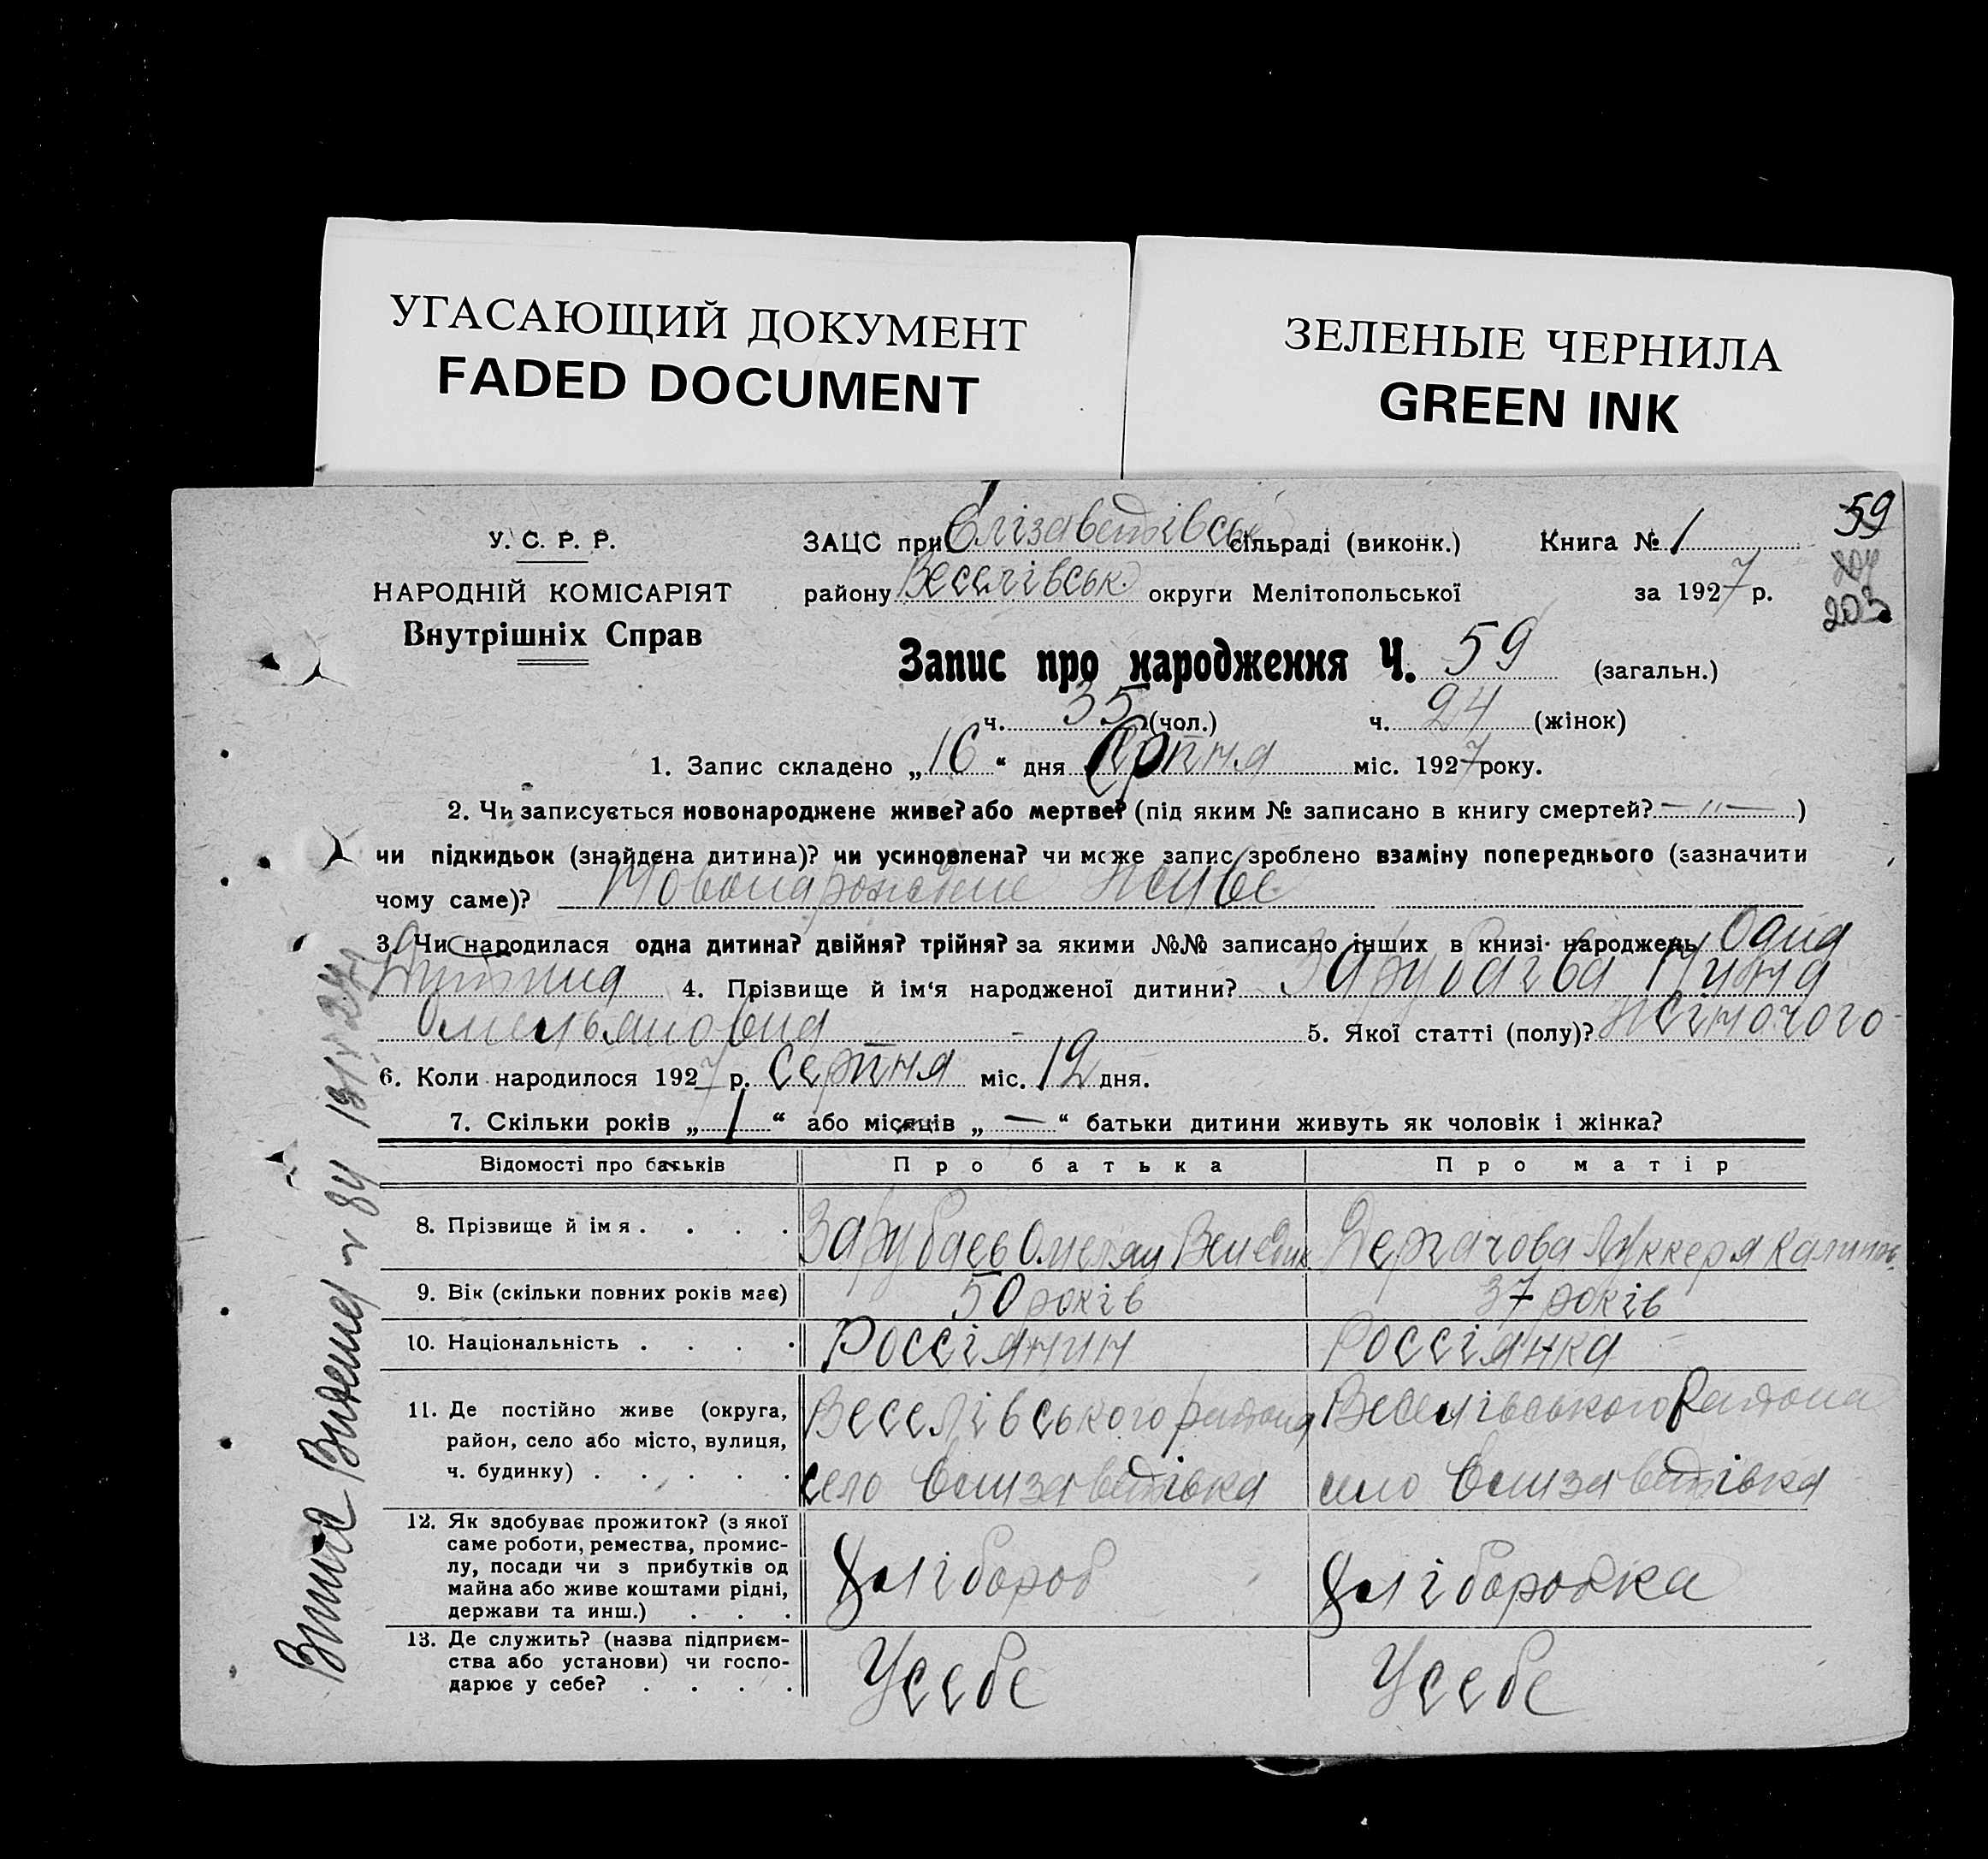 УГАСАЮЩИЙ ДОКУМЕНТ
FADED DOCUMENT
ЗЕЛЕНЫЕ ЧЕРНИЛА
GREEN INK
59
203
У. С. Р. Р.
НАРОДНІЙ КОМІСАРІЯТ
Внутрішніх Справ
ЗАЦС при Єлізаветівськ сільраді (виконк.) Книга № 1
району Веселівськ. округи Мелітопольської за 1927 р.
Запис про народження Ч. 59 (загальн.)
ч. 35 (чол.) ч. 24 (жінок)
1. Запис складено „16“ дня Серпня міс. 1927 року.
2. Чи записується новонароджене живе? або мертве? (під яким № записано в книгу смертей? —〃— )
чи підкидьок (знайдена дитина)? чи усиновлена? чи може запис зроблено взаміну попереднього (зазначити
чому саме)? Новонарождене живе
3. Чи народилася одна дитина? двійня? трійня? за якими №№ записано інших в книзі народжень Одна
Дитина 4. Прізвище й ім‘я народженої дитини? Зарубаєва Нина
Омельяновна 5. Якої статті (полу)? жіночого
6. Коли народилося 1927 р. серпня міс. 12 дня.
7. Скільки років „1“ або місяців „—“ батьки дитини живуть як чоловік і жінка?
Відомості про батьків Про батька Про матір
8. Прізвище й імя . . . . Зарубаєв Омелян Дергачова Луккеря
9. Вік (скільки повних років має) 50 років 37 років
10. Національність . . . . Россіянин Россіянка
11. Де постійно живе (округа, район, село або місто, вулиця, ч. будинку) . . . . . Веселівського района Веселівського Района
село Елизаветівка село Елизаветівка
12. Як здобуває прожиток? (з якої саме роботи, ремества, промислу, посади чи з прибутків од майна або живе коштами рідні, держави та инш.) . . . Хлібороб Хліборобка
13. Де служить? (назва підприємства або установи) чи господарює у себе? . . . . Усебе Усебе